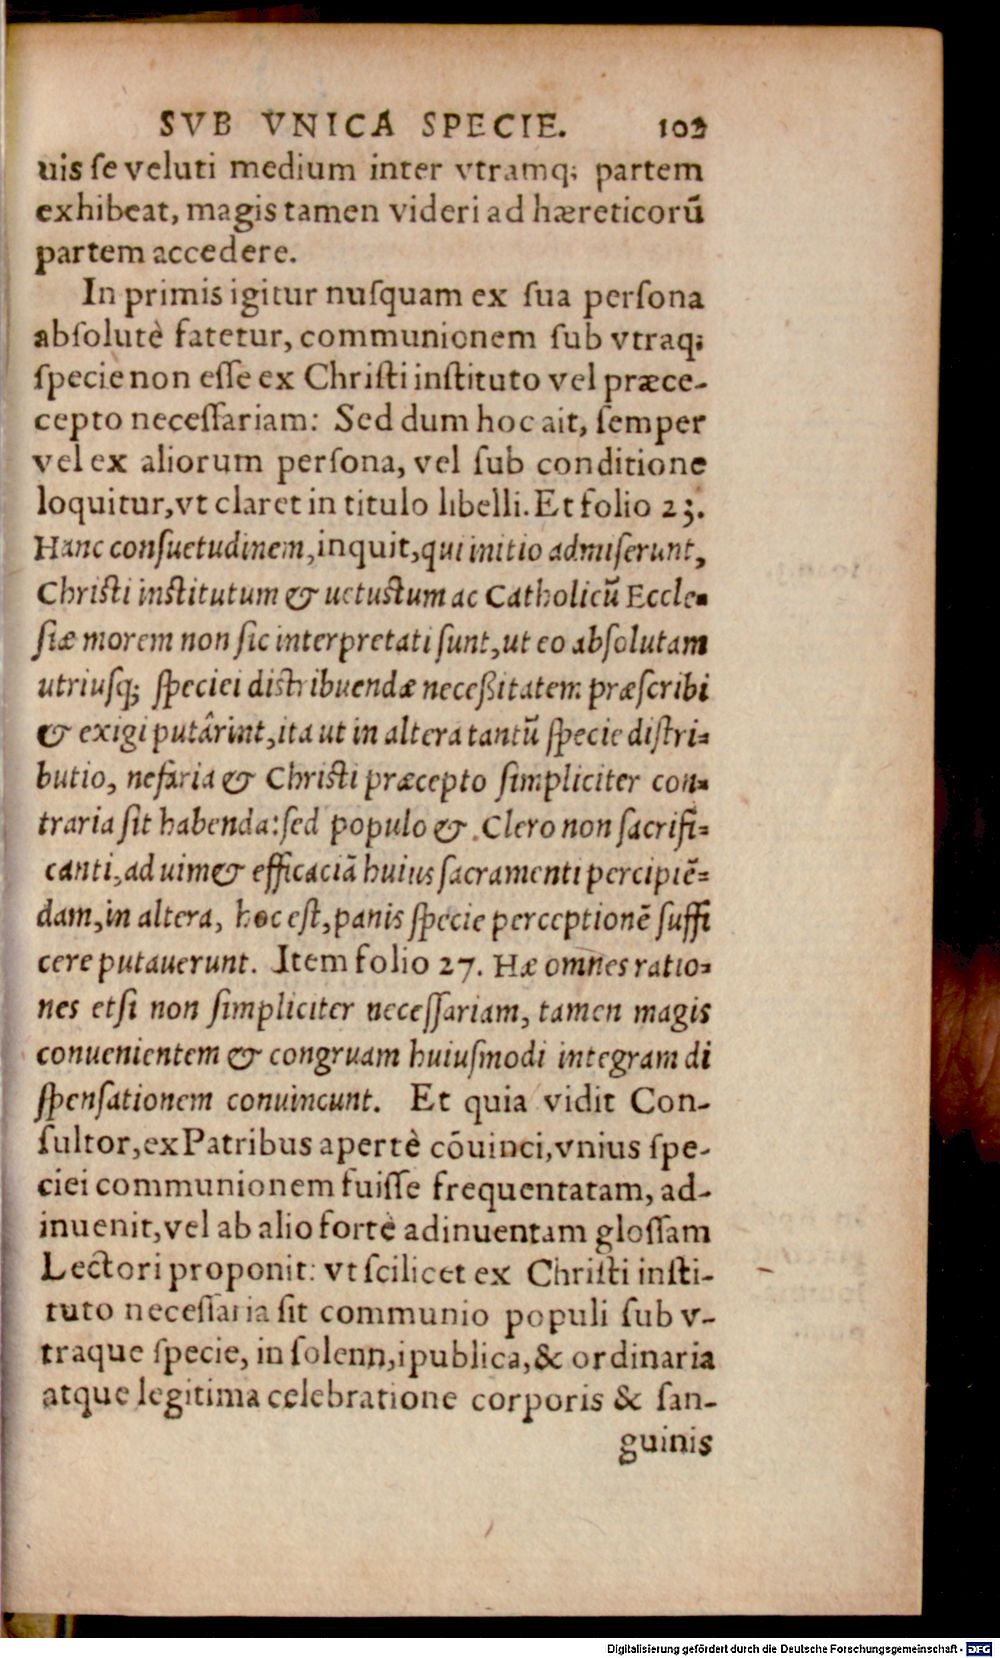 SVB VNICA SPECIE. 102
uis se veluti medium inter vtramq; partem
exhibeat, magis tamen videri ad hæreticorū
partem accedere.
In primis igitur nusquam ex sua persona
absolutè fatetur, communionem sub vtraq;
specie non esse ex Christi instituto vel præce-
cepto necessariam: Sed dum hoc ait, semper
vel ex aliorum persona, vel sub conditione
loquitur, vt claret in titulo libelli. Et folio 23.
Hanc consuetudinem, inquit, qui initio admiserunt,
Christi institutum & uetustum ac Catholicū Eccle-
siæ morem non sic interpretati sunt, ut eo absolutam
utriusq; speciei distribuendæ neceßitatem præscribi
& exigi putârint, ita ut in altera tantū specie distri-
butio, nefaria & Christi præcepto simpliciter con-
traria sit habenda: sed populo & Clero non sacrifi-
canti, ad uim & efficaciā huius sacramenti percipiē-
dam, in altera, hoc est, panis specie perceptionē suffi
cere putauerunt. Item folio 27. Hæ omnes ratio-
nes etsi non simpliciter necessariam, tamen magis
conuenientem & congruam huiusmodi integram di
spensationem conuincunt. Et quia vidit Con-
sultor, ex Patribus apertè cōuinci, vnius spe-
ciei communionem fuisse frequentatam, ad-
inuenit, vel ab alio fortè adinuentam glossam
Lectori proponit: vt scilicet ex Christi insti-
tuto necessaria sit communio populi sub v-
traque specie, in solenn,i publica, & ordinaria
atque legitima celebratione corporis & san-
guinis
Digitalisierung gefördert durch die Deutsche Forschungsgemeinschaft - DFG